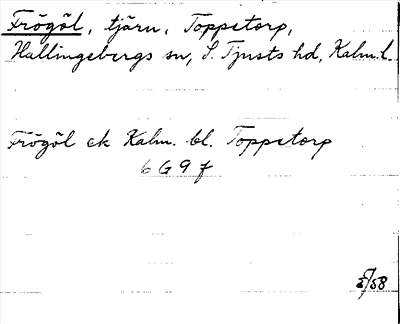 Frögöl, tjärn, Toppetorp,
Hallingebergs sn, S. Tjusts hd, Kalm. l.
Frögöl ek Kalm. bl. Toppetorp
6 G 9 f
/58